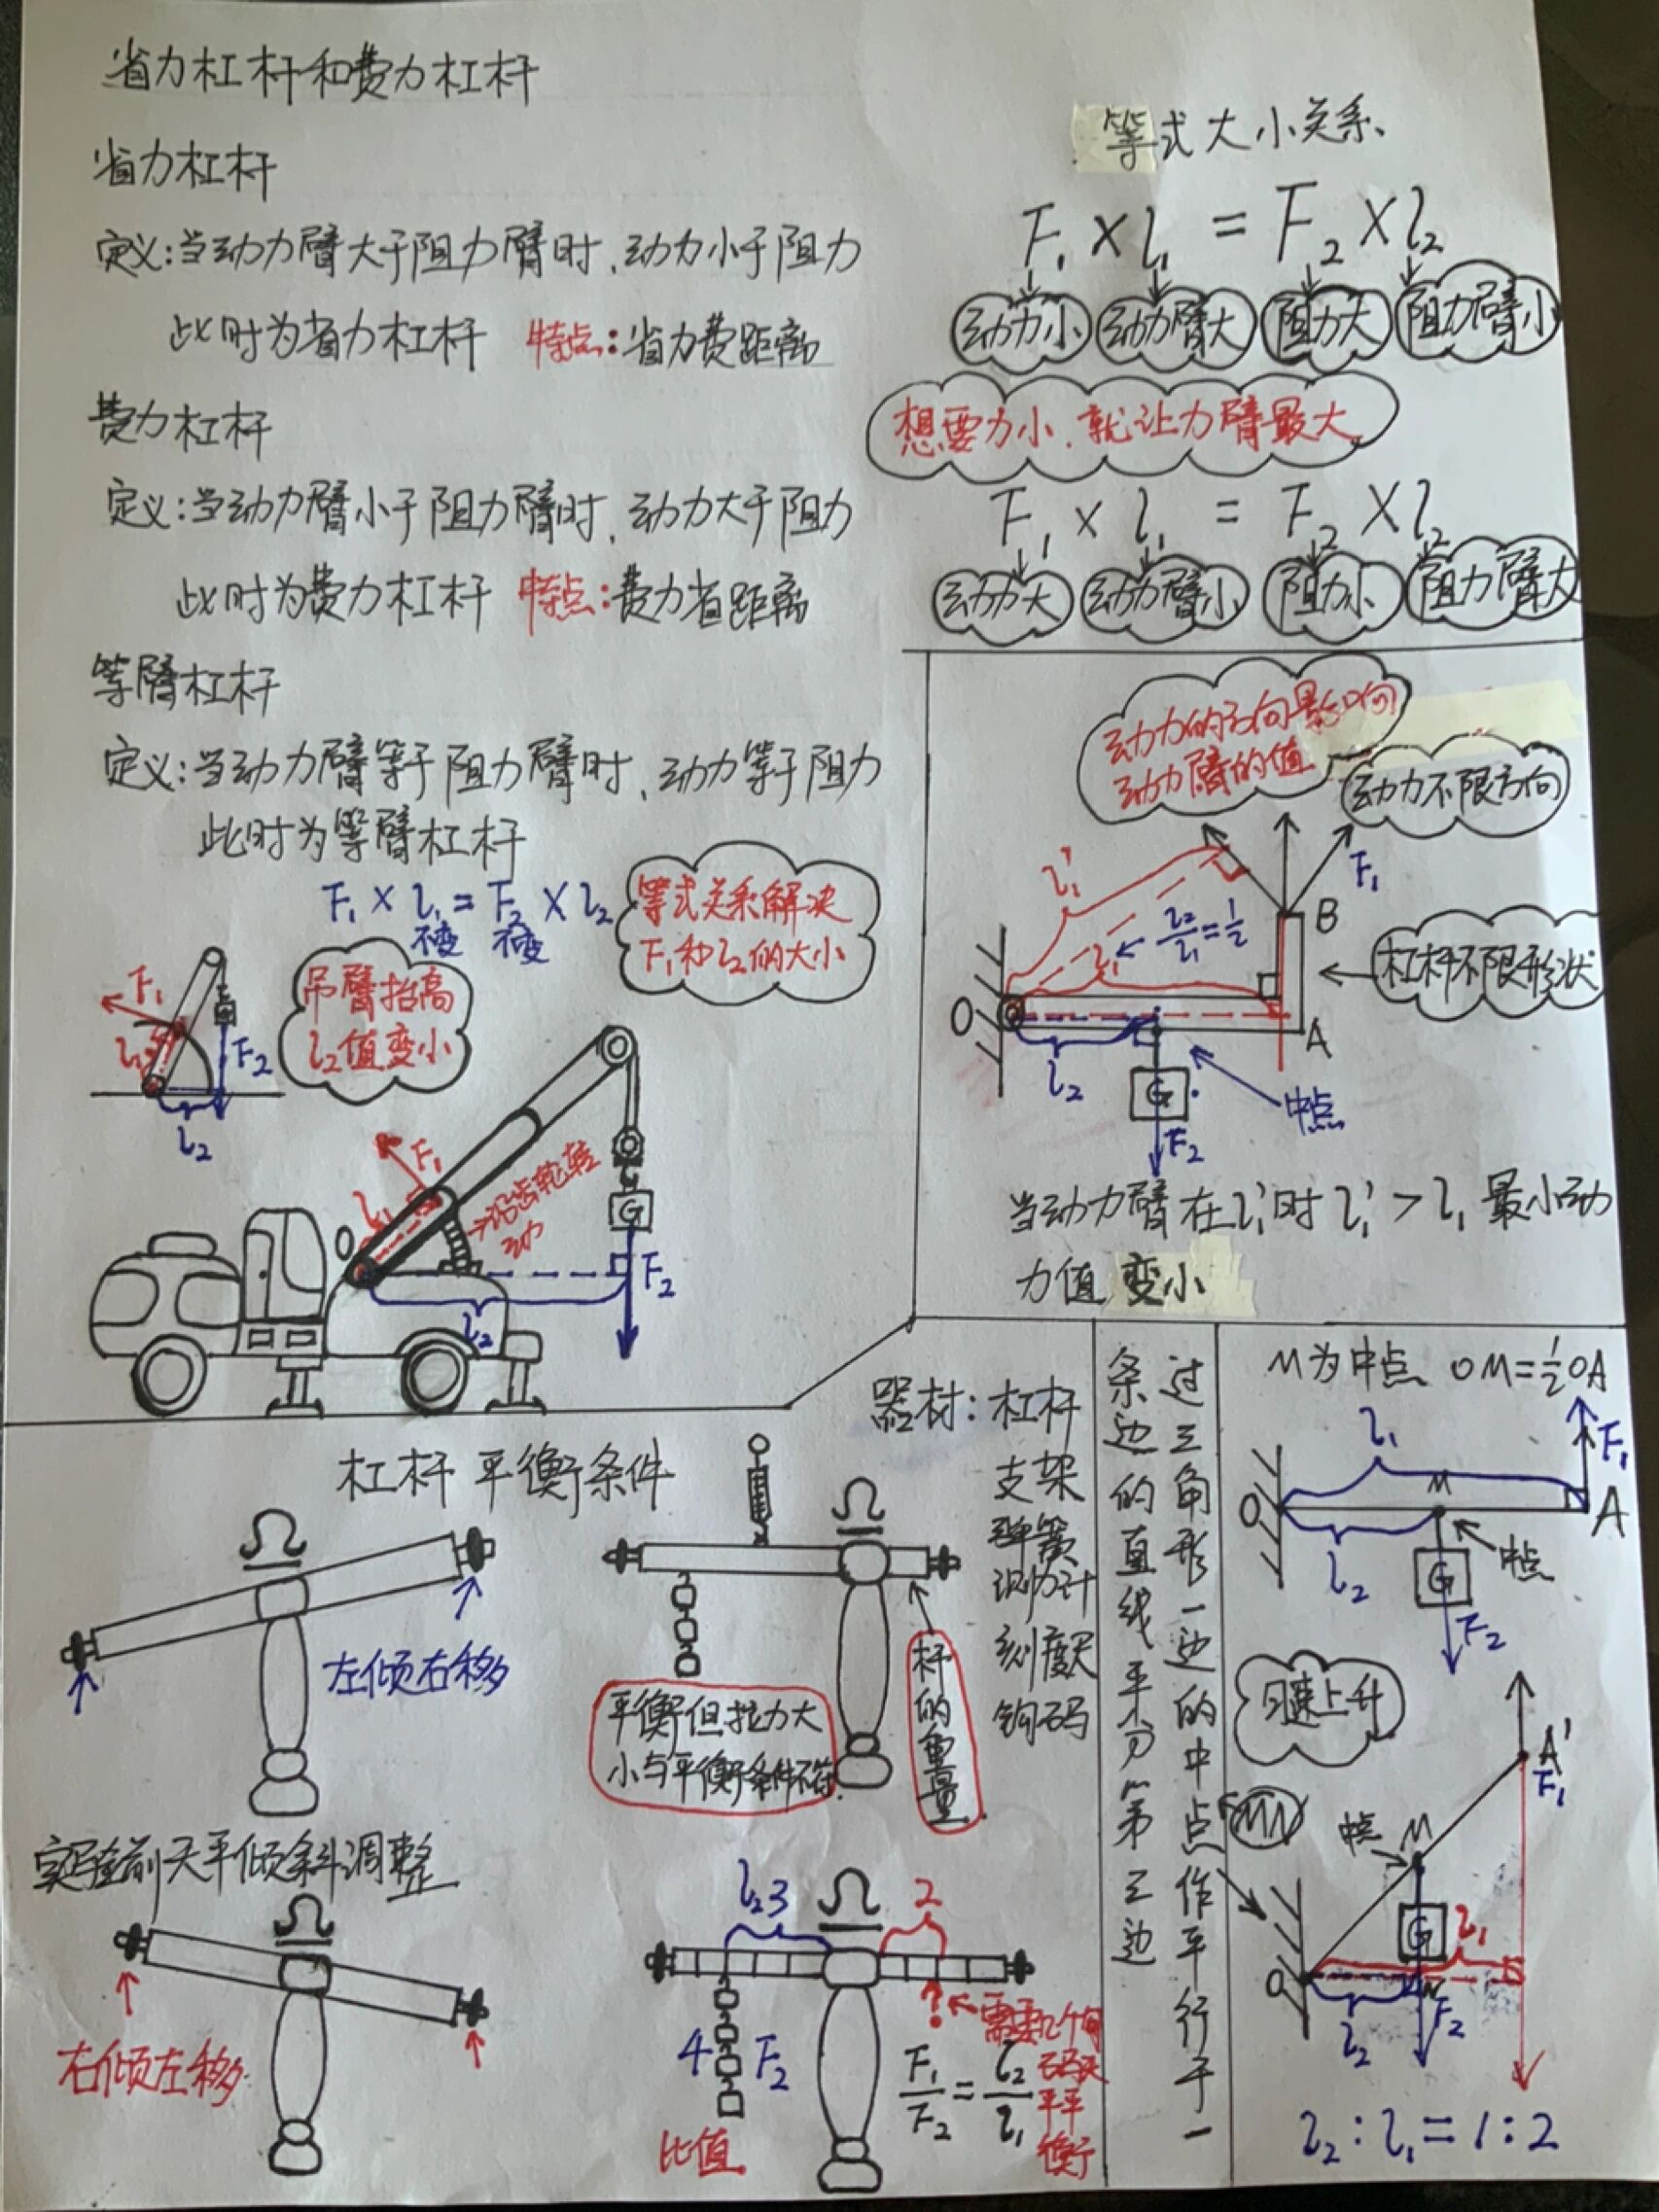 省力杠杆和费力杠杆
省力杠杆
定义:当动力臂大于阻力臂时,动力小于阻力
此时为省力杠杆 特点:省力费距离
费力杠杆
定义:当动力臂小于阻力臂时,动力大于阻力
此时为费力杠杆 特点:费力省距离
等臂杠杆
定义:当动力臂等于阻力臂时,动力等于阻力
此时为等臂杠杆
F₁ × l₁ = F₂ × l₂
不变 不变
等式关系解决
F₁和l₂的大小
吊臂抬高
l₂值变小
F₁
l₁
F₂
l₂
F₁
l₁
O
沿齿轮转
动
G
F₂
l₂
等式大小关系
F₁ × l₁ = F₂ × l₂
动力小 动力臂大 阻力大 阻力臂小
想要力小,就让力臂最大
F₁ × l₁ = F₂ × l₂
动力大 动力臂小 阻力小 阻力臂大
动力的方向影响
动力臂的值
动力不限方向
F₁
l₁'
l₂/l₁=1/2
l₁
B
杠杆不限形状
O
A
l₂
G
中点
F₂
当动力臂在l₁'时 l₁' > l₁ 最小动
力值变小
杠杆平衡条件
左倾右移
实验前天平倾斜调整
右倾左移
器材:杠杆
支架
弹簧
测力计
刻度尺
钩码
平衡但拉力大
小与平衡条件不符
杆的重量
l₂3
2
4 F₂
?
需要几个钩
码使天
平平
衡
F₁/F₂=l₂/l₁
比值
过三角形一边的中点作平行于一
条边的直线平分第三边
M为中点 OM=½OA
F₁
l₁
M
O
A
l₂
G
中点
F₂
匀速上升
A'
F₁
MN
中点
M
G
l₁
O
N
F₂
l₂
l₂:l₁=1:2